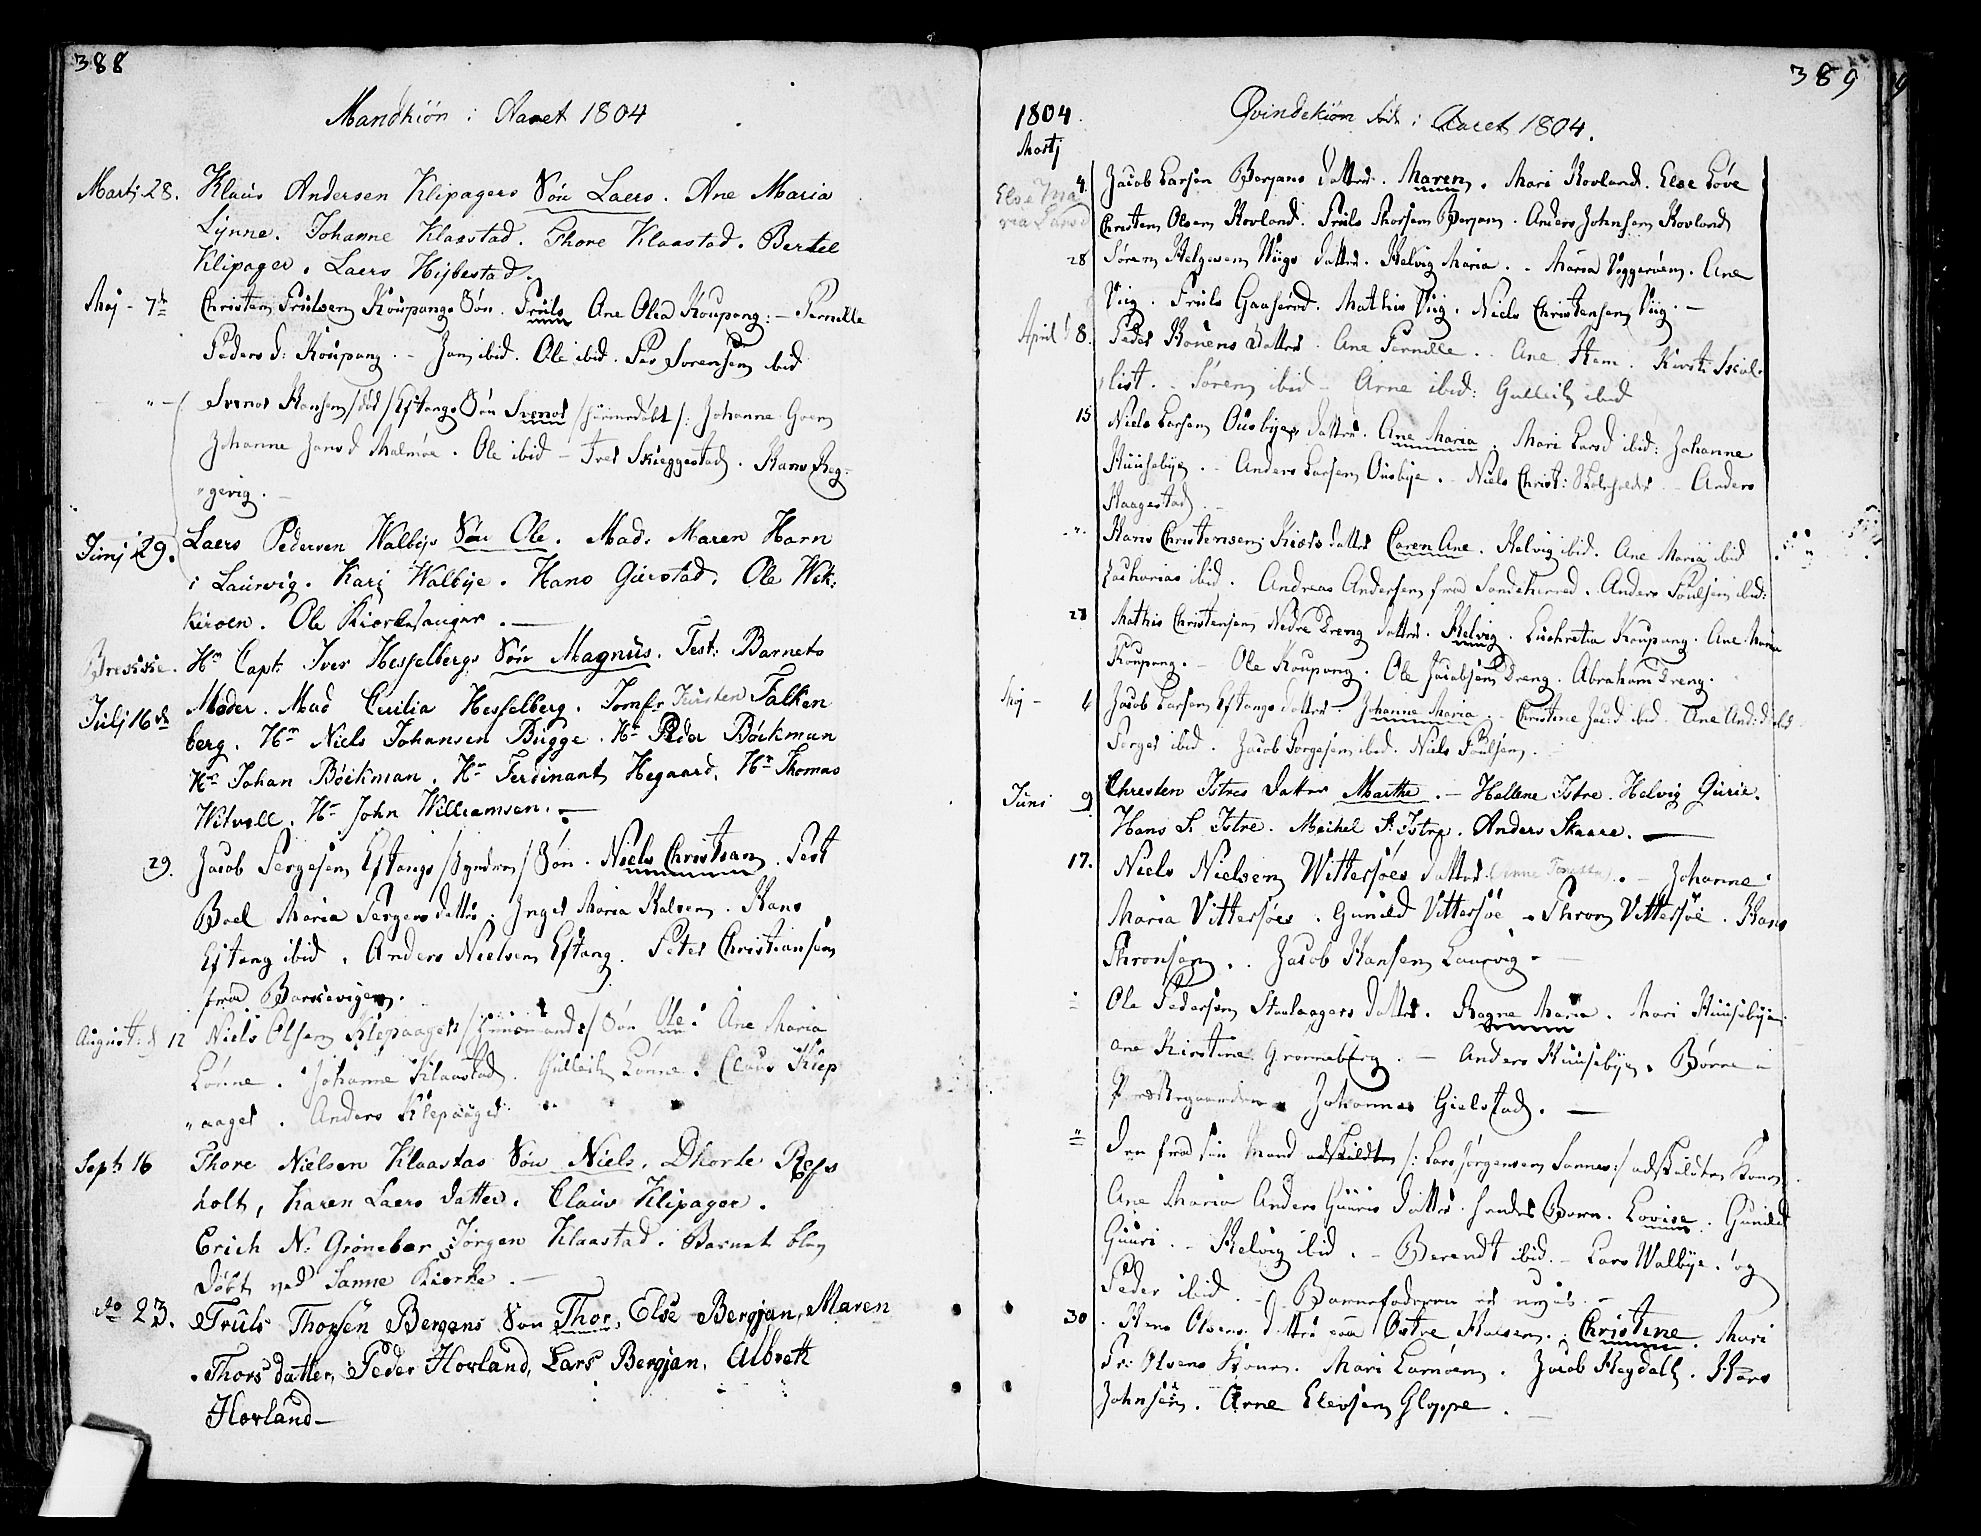 388
Mandkiön i Aaret 1804
Martj 28. Klaus Andersen Klipagers Sön Laers. Ane Maria
Lynne. Johanne Klaastad. Thore Klaastad. Bertel
Klipager. Laers Hijbestad.
Maj - 7de Christen Trulsen Koupangs Sön. Truls Ane Olea Koupang: - Pernille
Peders d: Koupang. - Jan ibid. Ole ibid. Per Sorensen ibid
" - Svenor Hansen /död/ Eftangs Sön Svenor /hiemedöbt/: Johanne Goen
Johanne Jans d Malmöe. Ole ibid - Iver Skieggestad. Hans Reg-
"gevig. -
Junj 29. Laers Pedersen Walbijs Sön Ole. Mad. Maren Harn
i Laurvig. Karj Walbije. Hans Gurstad. Ole Wek-
keroen. Ole Kirkesanger. -
Brevikske. Hr Capt: Iver Hesselbergs Sön Magnus. Test: Barnets
Julj 16de Moder. Mad Cecilia Hesselberg. Jomfr Kirsten Falken
berg. Hr Niels Johansen Bugge. Hr Peder Böikman
Hr Johan Böikman. Hr Ferdinant Hegaard. Hr Thomas
Witvell. Hr John Williamsen. -
29. Jacob Torgesen Eftangs /Yyndren/ Sön. Niels Christian. Test
Boel Maria Torgers datter. Inger Maria Halsen. Hans
Eftang ibid. Anders Nielsen Eftang. Peter Christiansen
fra Barkevigen.
August: d 12 Niels Olsen Klepaagers /Huusmands/ Sön Ole. Ane Maria
Lönne. Johanne Klaastad. Gulleich Lönne. Claus Klep
"aager. Anders Klepaager.
Septr 16 Thore Nielsen Klaastas Sön Niels. Dhorte Refs
holt, Karen Laers datter. Claus Klipager.
Erich N: Gröneber Jörgen Klaastad. Barnet blev
döbt ved Sanne Kierke. -
do 23. Truls Thorsen Bergans Son Thor, Else Bergjan, Maren
Thors datter, Peder Hovland, Lars Bergjan, Albrett
Hovland -
389
1804. Qvindekiön föd i Aaret 1804.
Martj
4. Jacob Larsen Berjans datter. Maren. Mari Hovland. Else Löve
Else Ma
ria Larsd
Christen Olsen Hovland. Truls Thorsen Berjan. Anders Johnsen Hovland
28 Sören Helgesen Wiigs datter. Helvig Maria. - Maria Viggeröen. Ane
Viig. Truls Gaaserød. Mathis Viig. Niels Christensen Viig. -
April 8. Peder Houens datter. Ane Pernille. - Ane Hem. Kirsti Skal-
list. - Sören ibid - Arne ibid: Gulleich ibid
15 Niels Larsen Ousbyes datter. Ane Maria. Mari Larsd ibid: Johanne
Huusebye. - Anders Larsen Ousbye. - Niels Christ: Skoleholder - Anders
Haagestad. -
" Hans Christensen Kiærs datter Caren Ane. Helvig ibid. Ane Maria ibid
Zacharias ibid. Andreas Andersen fra Sandeherred. Anders Poulsen ibid:
28 Mathis Christensen Nedre Dreng datter. Helvig. Luchretia Koupang. Ane Maria
Koupang. - Ole Koupang. Ole Jacobsen Dreng. Abraham Dreng.
Maj - 6 Jacob Larsen Eftangs datter. Johanne Maria. - Christine Jac:d ibid. Ane And:d ibid.
Torger ibid. Jacob Torgesen ibid. Niels Poulsen.
Juni 9 Christen Istres datter Marthe. - Hellene Istre. Helvig Gurie.
Hans S. Istre. Meihel P: Istre. Anders Skaare. -
17. Niels Nielsen Wittersöes datter. - Johanne
Maria Vittersöes. Gunild Vittersöe. Thron Vittersöe. Hans
Thronsen. Jacob Hansen Laurvig. -
" Ole Pedersen Staalaagers datter. Ragne Maria. Mari Huusebye
ane Kirstine Gronneberg. - Anders Huusebye. Börre i
Præstegaarden. Johannes Gielstad. -
" Den fra sin Mand adskildte /: Lars Jörgensen Sannes:/ adskildte Kone
Ane Maria Anders Guuris datter hendes Barn. Lovise. Gunild
Guuri. - Helvig ibid. - Berendt ibid. - Lars Walbye. og
Peder ibid. - Barnefaderen er uvis. -
30 Hans Olsens datter paa Östre Halsen. Christine. Mari
Tr: Olsens Kone. Mari Lamöen. Jacob Heydall. Hans
Johnsen. Arne Elevsen Gloppe. -